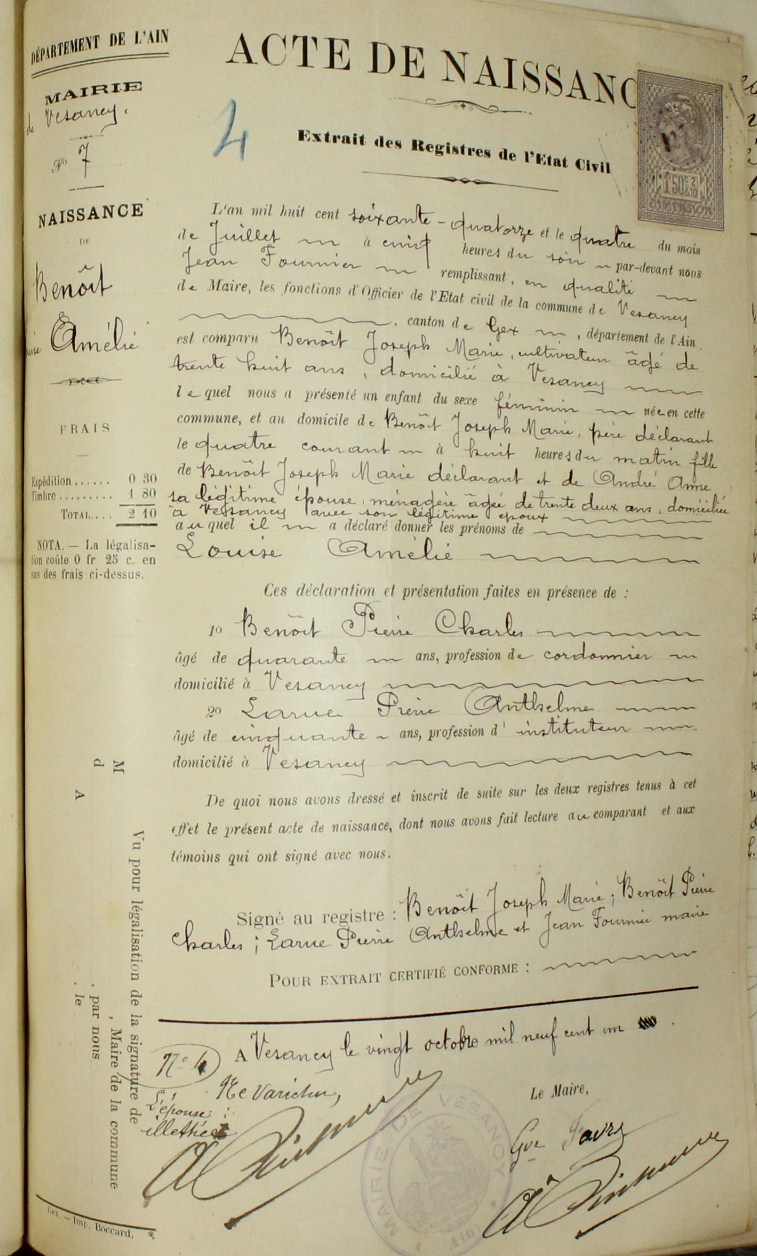 DÉPARTEMENT DE L'AIN
MAIRIE
de Vesancy.
No 7
NAISSANCE
DE
Benoît
Amélie
FRAIS
Expédition ...... 0 30
Timbre ......... 1 80
TOTAL.... 2 10
NOTA. — La légalisa-
tion coûte 0 fr 25 c. en
sus des frais ci-dessus.
ACTE DE NAISSANC
4
Extrait des Registres de l'Etat Civil
1F50
DIMENSION
L'an mil huit cent soixante-quatorze et le quatre du mois
de Juillet à cinq heures du soir par-devant nous
Jean Fournier remplissant, en qualité
de Maire, les fonctions d'Officier de l'Etat civil de la commune de Vesancy
, canton de Gex, département de l'Ain
est comparu Benoît Joseph Marie, cultivateur âgé de
trente huit ans, domicilié à Vesancy
lequel nous a présenté un enfant du sexe féminin née en cette
commune, et au domicile de Benoît Joseph Marie, père déclarant
le quatre courant à huit heures du matin fille
de Benoît Joseph Marie déclarant et de André Anne
sa légitime épouse, ménagère âgée de trente deux ans, domiciliée
à Vesancy avec son légitime époux
auquel il a déclaré donner les prénoms de
Louise Amélie
Ces déclaration et présentation faites en présence de :
1o Benoît Pierre Charles
âgé de quarante ans, profession de cordonnier
domicilié à Vesancy
2o Larue Pierre Anthelme
âgé de cinquante ans, profession d'instituteur
domicilié à Vesancy
De quoi nous avons dressé et inscrit de suite sur les deux registres tenus à cet
effet le présent acte de naissance, dont nous avons fait lecture au comparant et aux
témoins qui ont signé avec nous.
Signé au registre : Benoît Joseph Marie; Benoît Pierre
Charles; Larue Pierre Anthelme et Jean Fournier maire
POUR EXTRAIT CERTIFIÉ CONFORME :
A Vesancy le vingt octobre mil neuf cent un.
No 4
Ne Varietur,
L'épouse
illettrée
Le Maire,
Gve Favre
MAIRIE DE VESANCY
AIN
Vu pour légalisation de la signature de
M , Maire de la commune
d . par nous
A . le
Gex. — Imp. Boccard.